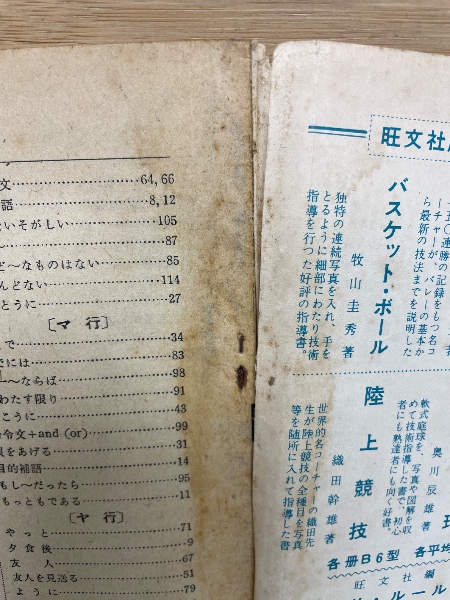 文……………64, 66
語……………8, 12
いそがしい……………105
……………87
～なものはない……………85
んどない……………114
とうに……………27
〔マ 行〕
で……………34
では……………83
～ならば……………98
わたす限り……………91
こうに……………43
令文+and (or)……………99
をあげる……………31
目的補語……………14
もし～だったら……………95
もっともである……………11
〔ヤ 行〕
やっと……………71
夕食後……………9
友人……………67
友人を見送る……………51
ように……………79
旺文社
五〇連勝の記録をもつ名コ
ーチャーが、バレーの基本か
ら最新の技法までを説明した
バスケット・ボール
牧山圭秀著
独特の連続写真を入れ、手を
とるように細部にわたり技術
指導を行つた好評の指導書。
奥川辰雄著
軟式庭球を、写真や図解を収
めて技術指導した書で、初心
者にも熟達者にも向く好書。
陸上競技
織田幹雄著
世界的名コーチャーの織田先
生が陸上競技の全種目を写真
等を随所に入れて指導した書
各册B6型 各平均
旺文社編
ルール